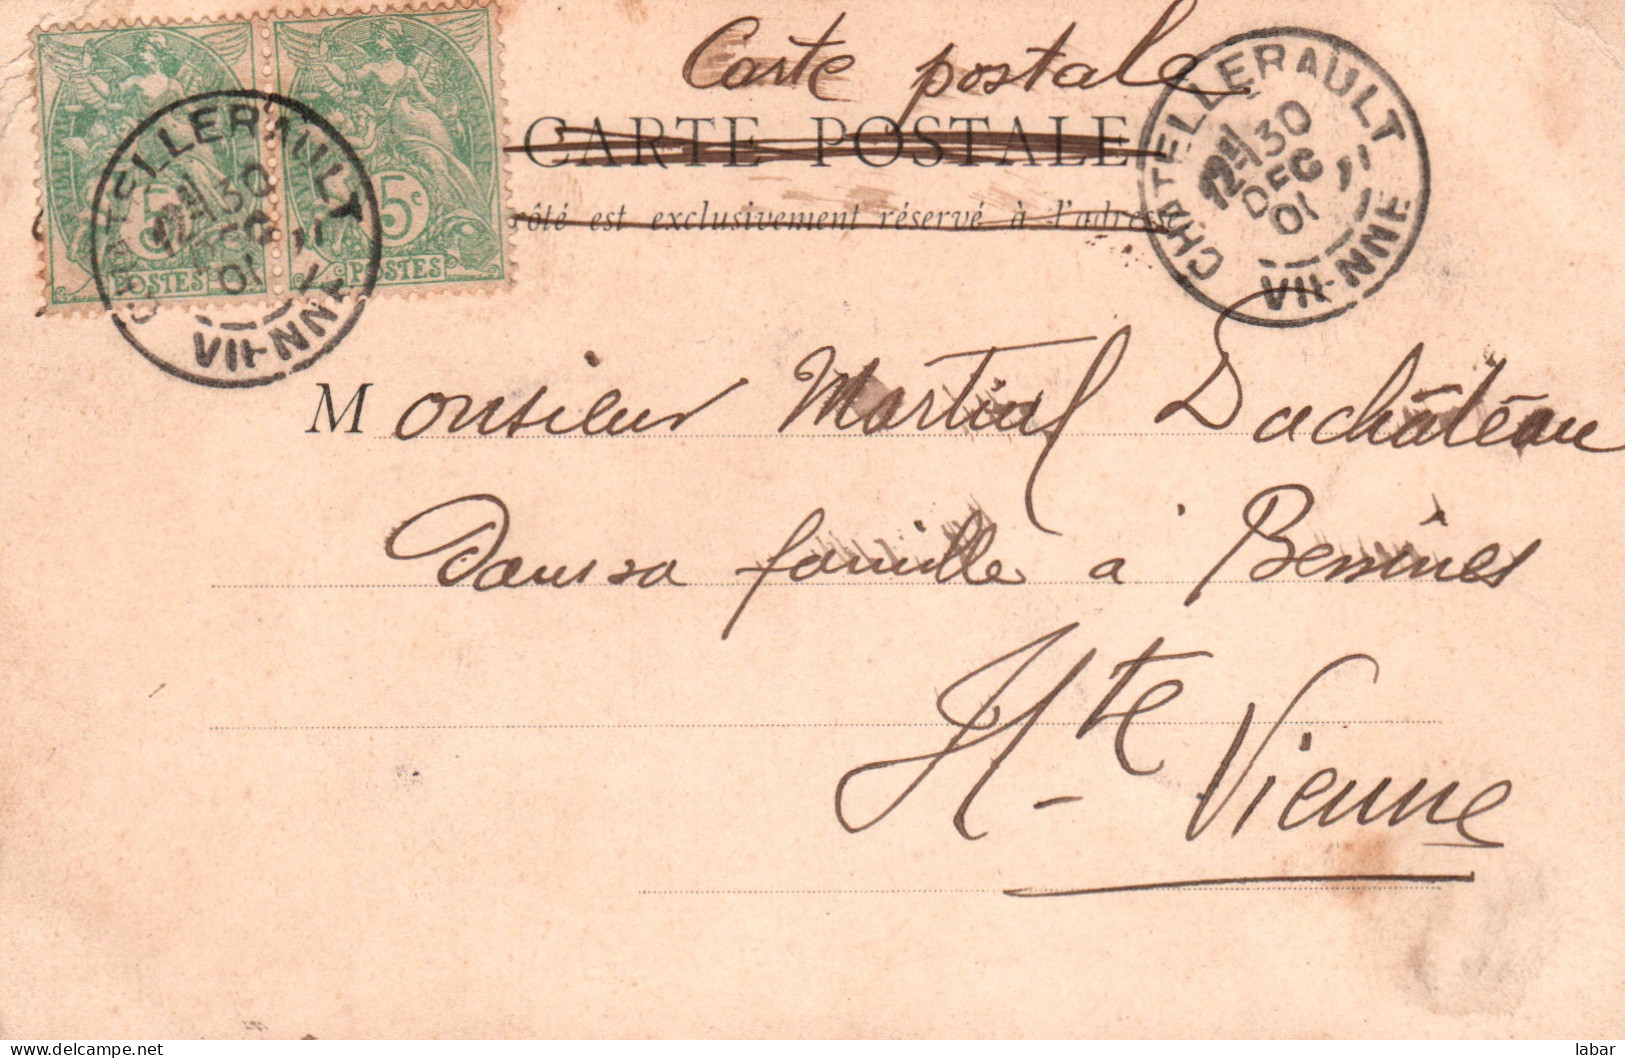 Carte postale
CARTE POSTALE
côté est exclusivement réservé à l'adresse
5c
POSTES
POSTES
CHATELLERAULT
30
DEC
01
VIENNE
CHATELLERAULT
12
30
DEC
01
VIENNE
Monsieur Martial Duchâteau
Dans sa famille à Bessines
Hte-Vienne
labar